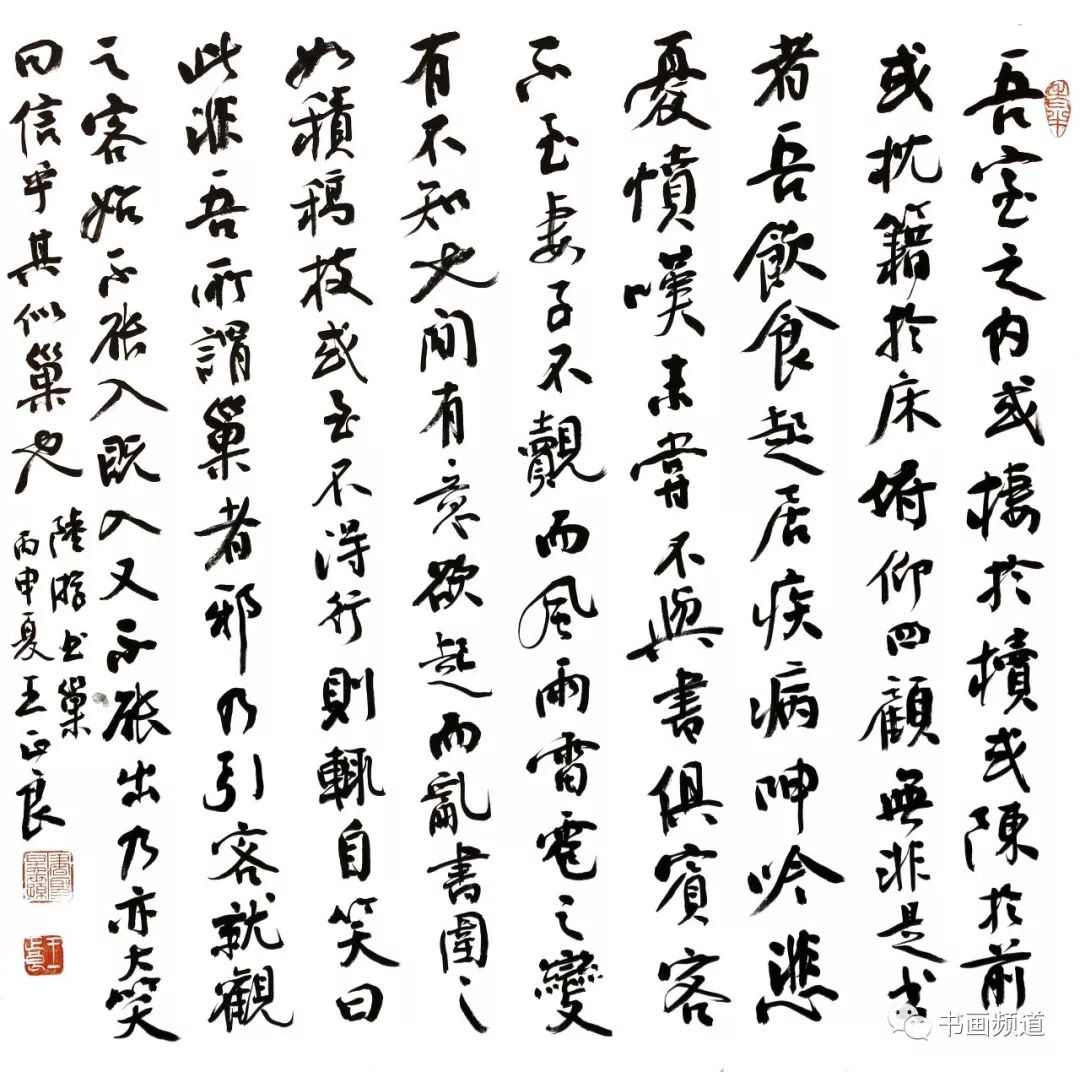 吾室之内或棲於櫝或陳於前
或枕籍於床俯仰四顧無非是书
者吾飲食起居疾病呻吟悲
憂憤嘆未嘗不與書俱賓客
不至妻子不覿而風雨雷雹之變
有不知也間有意欲起而亂書圍之
如積稿枝或至不得行則輒自笑曰
此非吾所謂巢者邪乃引客就觀
之客始不能入既入又不能出乃亦大笑
曰信乎其似巢也
陸游书巢
丙申夏王正良
书画频道